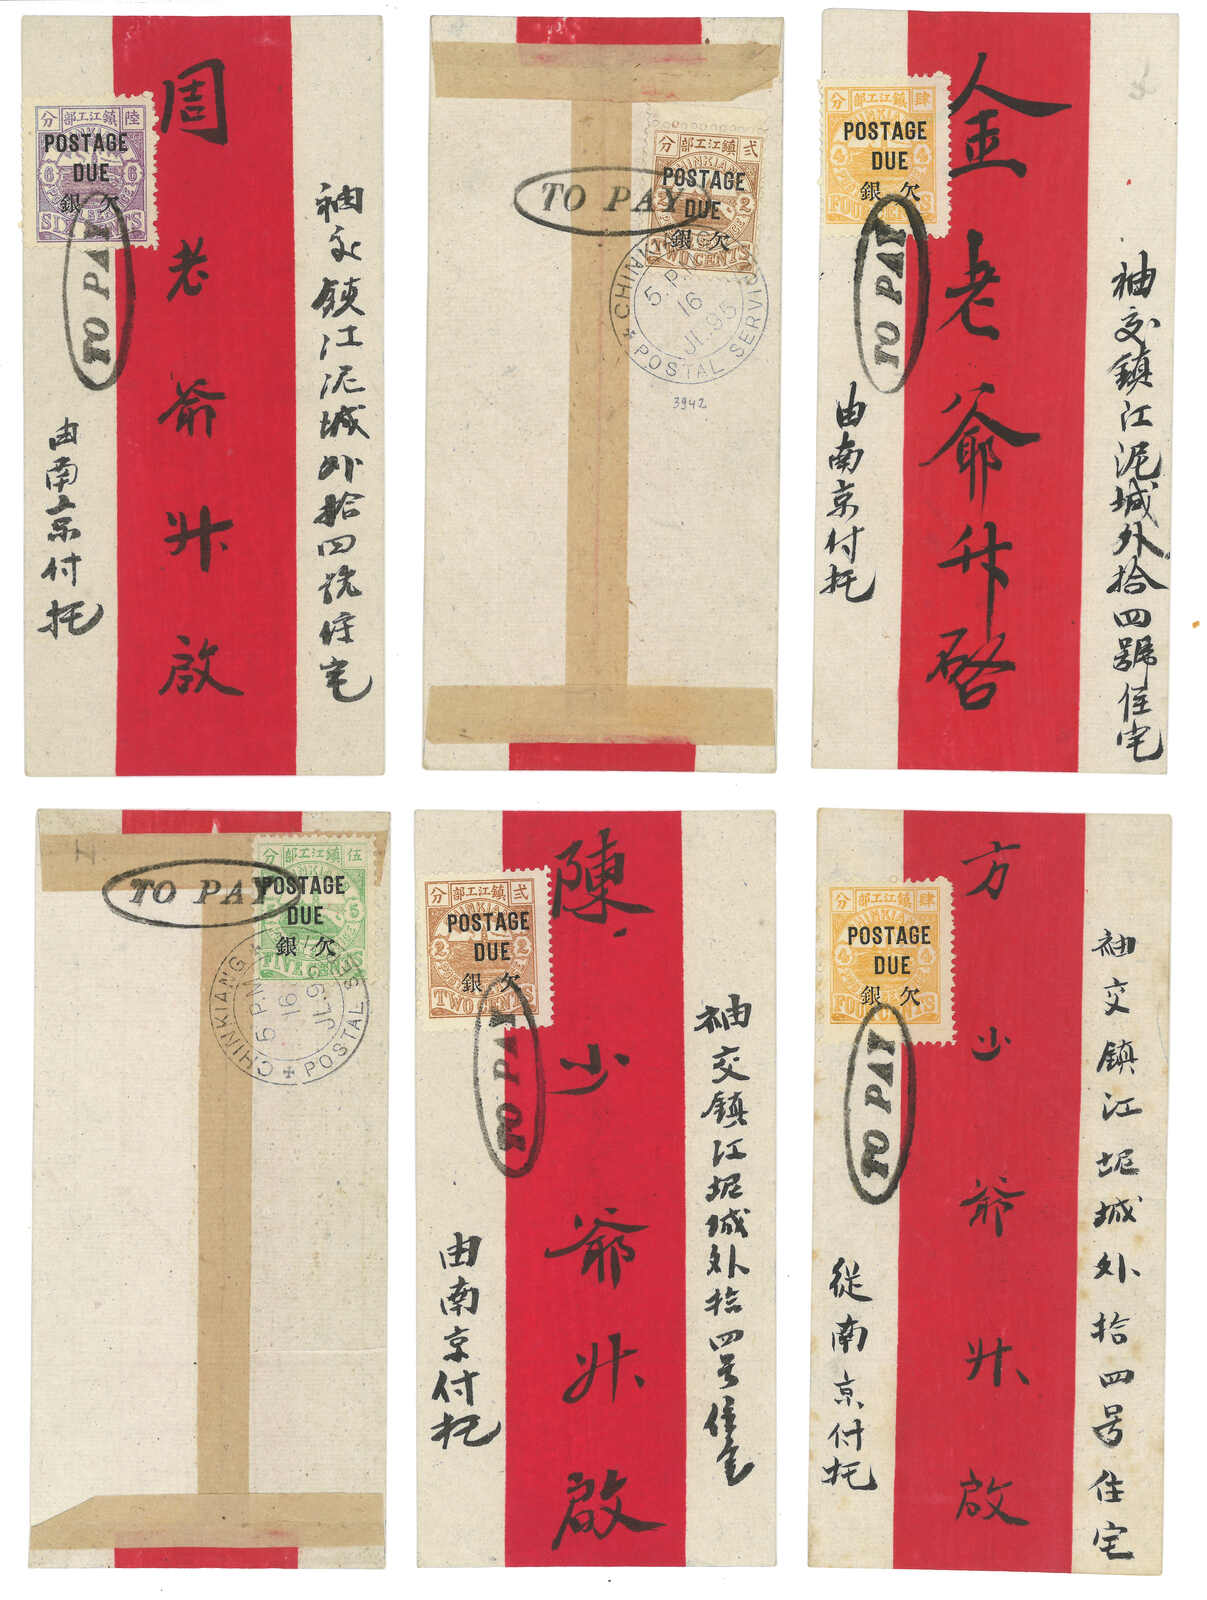 分 鎮江工部 陸
CHINKIANG
6 6
SIX CENTS
POSTAGE
DUE
銀 欠
TO PAY
周老爺升啟
袖交鎮江泥城外拾四號住宅
由南京付托
分 鎮江工部 弍
CHINKIANG
2
TWO CENTS
POSTAGE
DUE
銀 欠
TO PAY
CHINKIANG POSTAL SERVICE
5 P.M.
16
JL.95
3942
分 鎮江工部 肆
4 4
FOUR CENTS
POSTAGE
DUE
銀 欠
TO PAY
金老爺升啓
袖交鎮江泥城外拾四號住宅
由南京付托
分 鎮江工部 伍
5
FIVE CENTS
POSTAGE
DUE
銀 欠
TO PAY
CHINKIANG POSTAL SERVICE
5 P.M.
16
JL.95
分 鎮江工部 弍
CHINKIANG
2 2
TWO CENTS
POSTAGE
DUE
銀 欠
TO PAY
陳少爺升啟
袖交鎮江坭城外拾四号住宅
由南京付托
分 鎮江工部 肆
CHINKIANG
4 4
FOUR CENTS
POSTAGE
DUE
銀 欠
TO PAY
方少爺升啟
袖交鎮江坭城外拾四号住宅
從南京付托